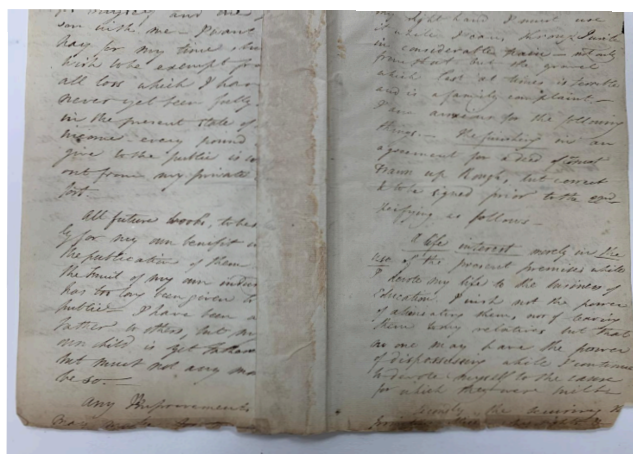 son with me — I want
pay for my time also
wish to be exempt fro
all loss which I have
never yet been fully
in the present state of
income — every pound
give to the public is
out from my private
All future works, to be
ly for my own benefit
the publication of them
the fruit of my own indus
has too long been given to
public — I have been a
father to others, but my
own child is yet father
but must not any mo
be so. —
Any Improvements
right hand I must use
it while I
in considerable pain — not only
from that but the gravel
which last at times is terrible
and is a family complaint. —
I am anxious for the following
things — The finishing in an
agreement for a deed of Trust
Drawn up though, but correct
& to be signed prior to the
as follows —
A life interest merely in the
use of the present premises while
I devote my life to the business of
Education. I wish not the power
of alienating them, nor of leaving
them to my relatives, but that
no one may have the power
of dispossessing while I continue
to devote myself to the cause
for which they were built
Secondly the